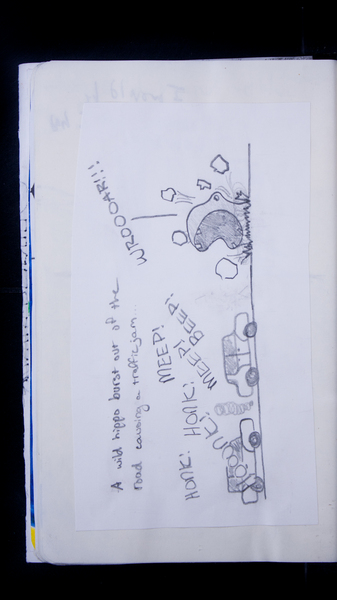 A wild hippo burst out of the
road causing a traffic jam...
WROOOAR!!!
MEEP!
HONK! HONK! MEEP! BEEP!